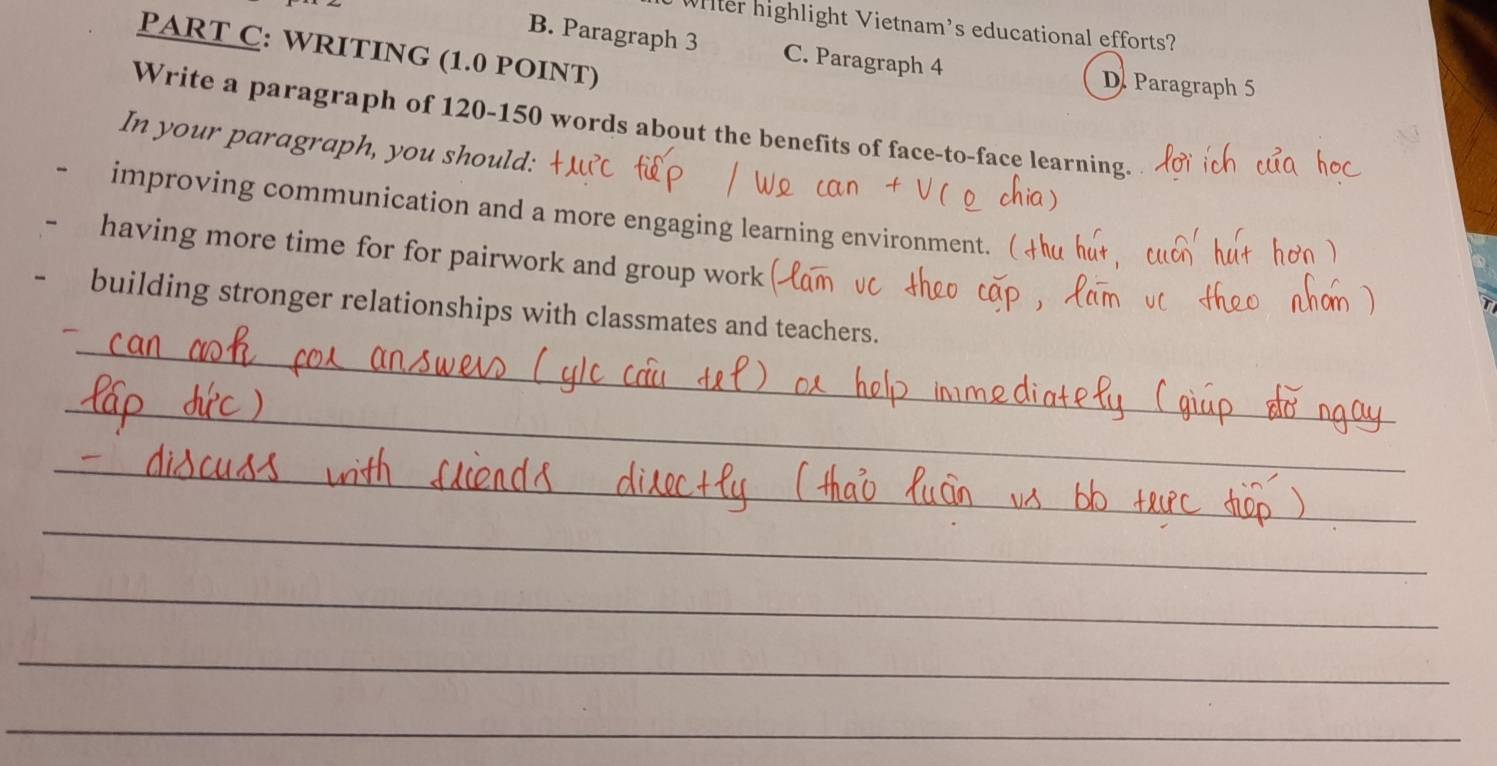 writer highlight Vietnam's educational efforts?
B. Paragraph 3 C. Paragraph 4 D. Paragraph 5
PART C: WRITING (1.0 POINT)
Write a paragraph of 120-150 words about the benefits of face-to-face learning. lợi ích của học
In your paragraph, you should: trực tiếp / We can + V( o chia)
- improving communication and a more engaging learning environment. (thu hút, cuốn hút hơn)
- having more time for for pairwork and group work (làm vc theo cặp, làm vc theo nhóm)
- building stronger relationships with classmates and teachers.
- can ask for answers (y/c câu trl) or help immediately (giúp đỡ ngay
lập tức)
- discuss with friends directly (thảo luận vs bb trực tiếp)